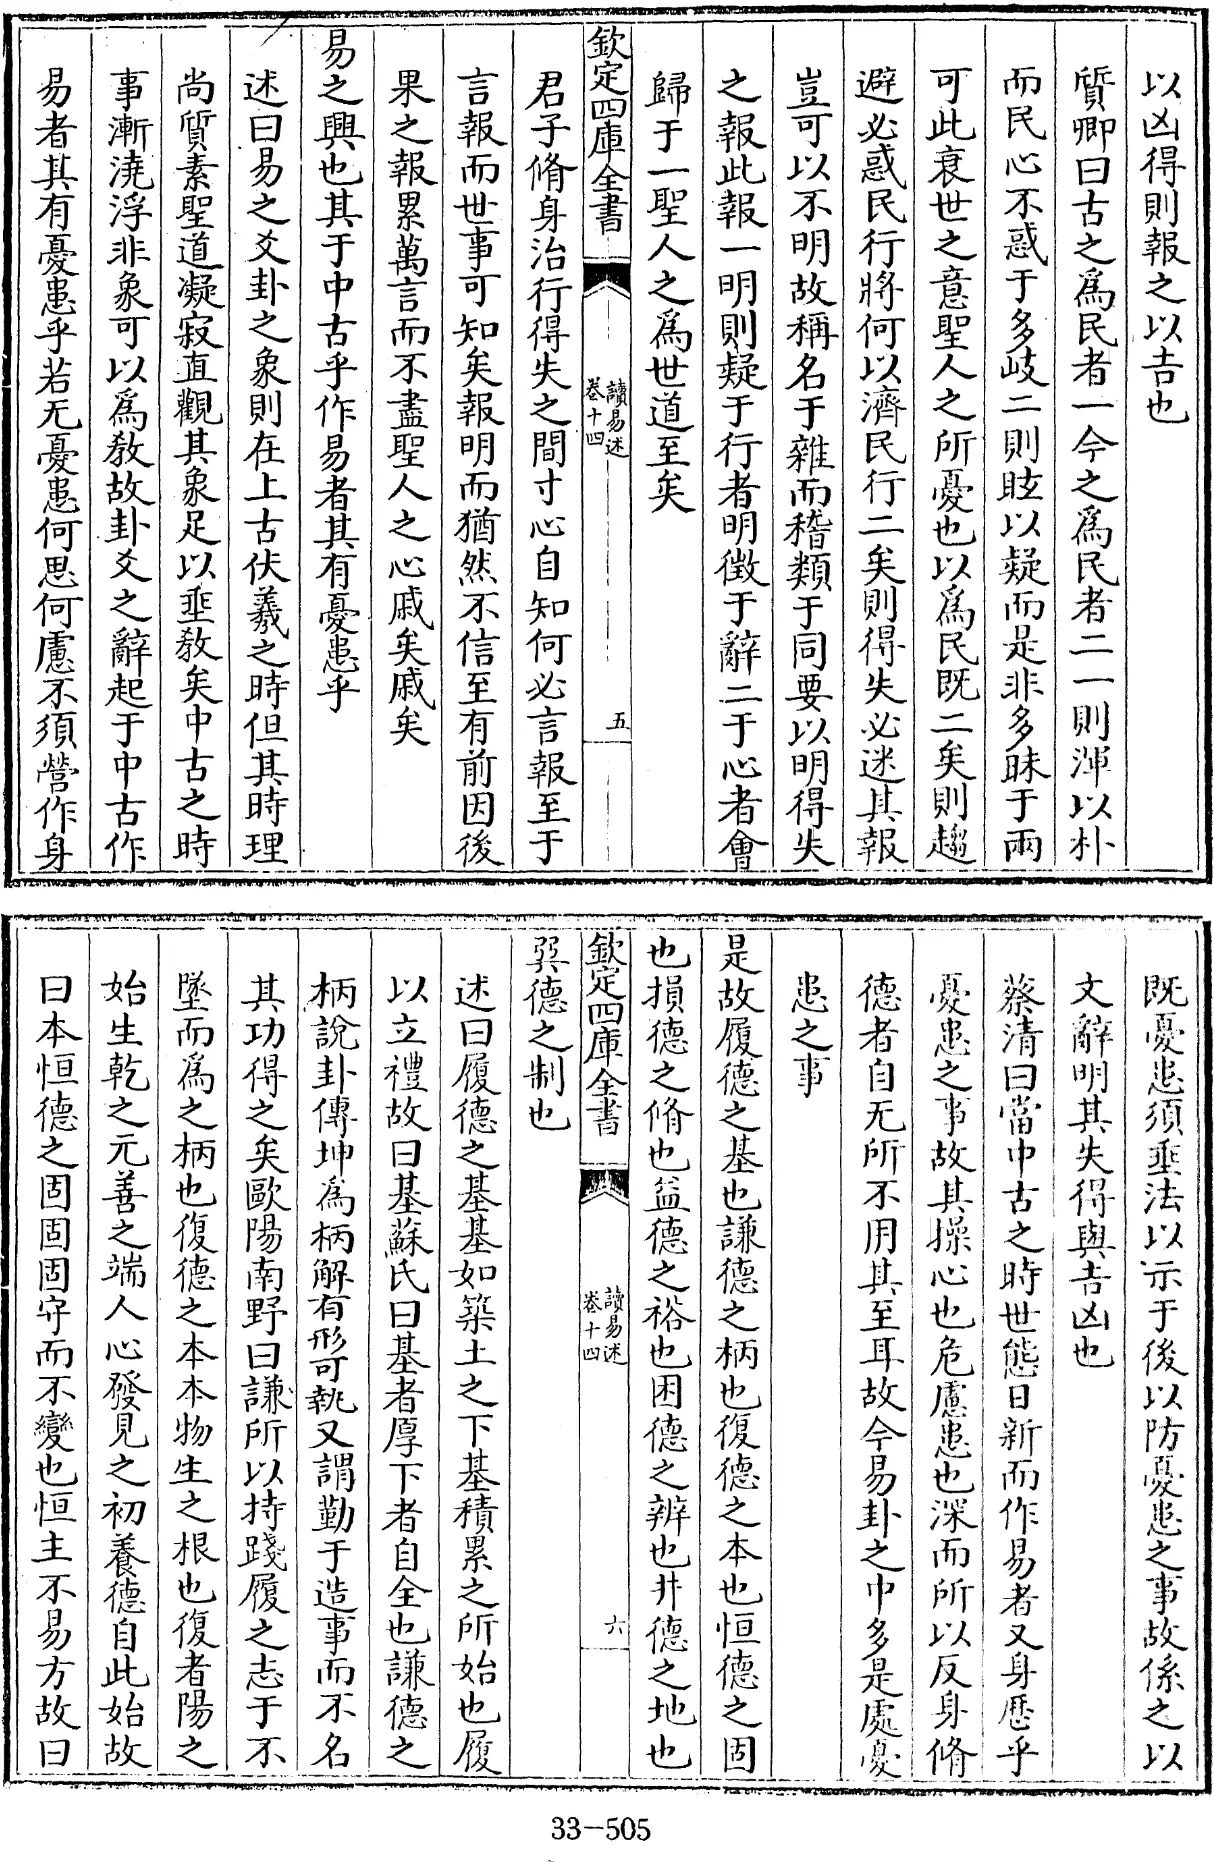 以凶得則報之以吉也
質卿曰古之為民者一今之為民者二一則渾以朴
而民心不惑于多岐二則眩以疑而是非多昧于兩
可此衰世之意聖人之所憂也以為民既二矣則趨
避必惑民行將何以濟民行二矣則得失必迷其報
豈可以不明故稱名于雜而稽類于同要以明得失
之報此報一明則疑于行者明徴于辭二于心者會
歸于一聖人之為世道至矣
欽定四庫全書
讀易述
卷十四
五
君子脩身治行得失之間寸心自知何必言報至于
言報而世事可知矣報明而猶然不信至有前因後
果之報累萬言而不盡聖人之心戚矣戚矣
易之興也其于中古乎作易者其有憂患乎
述曰易之爻卦之象則在上古伏羲之時但其時理
尚質素聖道凝寂直觀其象足以垂教矣中古之時
事漸澆浮非象可以為教故卦爻之辭起于中古作
易者其有憂患乎若无憂患何思何慮不須營作身
既憂患須垂法以示于後以防憂患之事故係之以
文辭明其失得與吉凶也
蔡清曰當中古之時世態日新而作易者又身歷乎
憂患之事故其操心也危慮患也深而所以反身脩
德者自无所不用其至耳故今易卦之中多是處憂
患之事
是故履德之基也謙德之柄也復德之本也恒德之固
也損德之脩也益德之裕也困德之辨也井德之地也
欽定四庫全書
讀易述
卷十四
六
巽德之制也
述曰履德之基基如築土之下基積累之所始也履
以立禮故曰基蘇氏曰基者厚下者自全也謙德之
柄說卦傳坤為柄解有形可執又謂勤于造事而不名
其功得之矣歐陽南野曰謙所以持踐履之志于不
墜而為之柄也復德之本本物生之根也復者陽之
始生乾之元善之端人心發見之初養德自此始故
曰本恒德之固固固守而不變也恒主不易方故曰
33-505